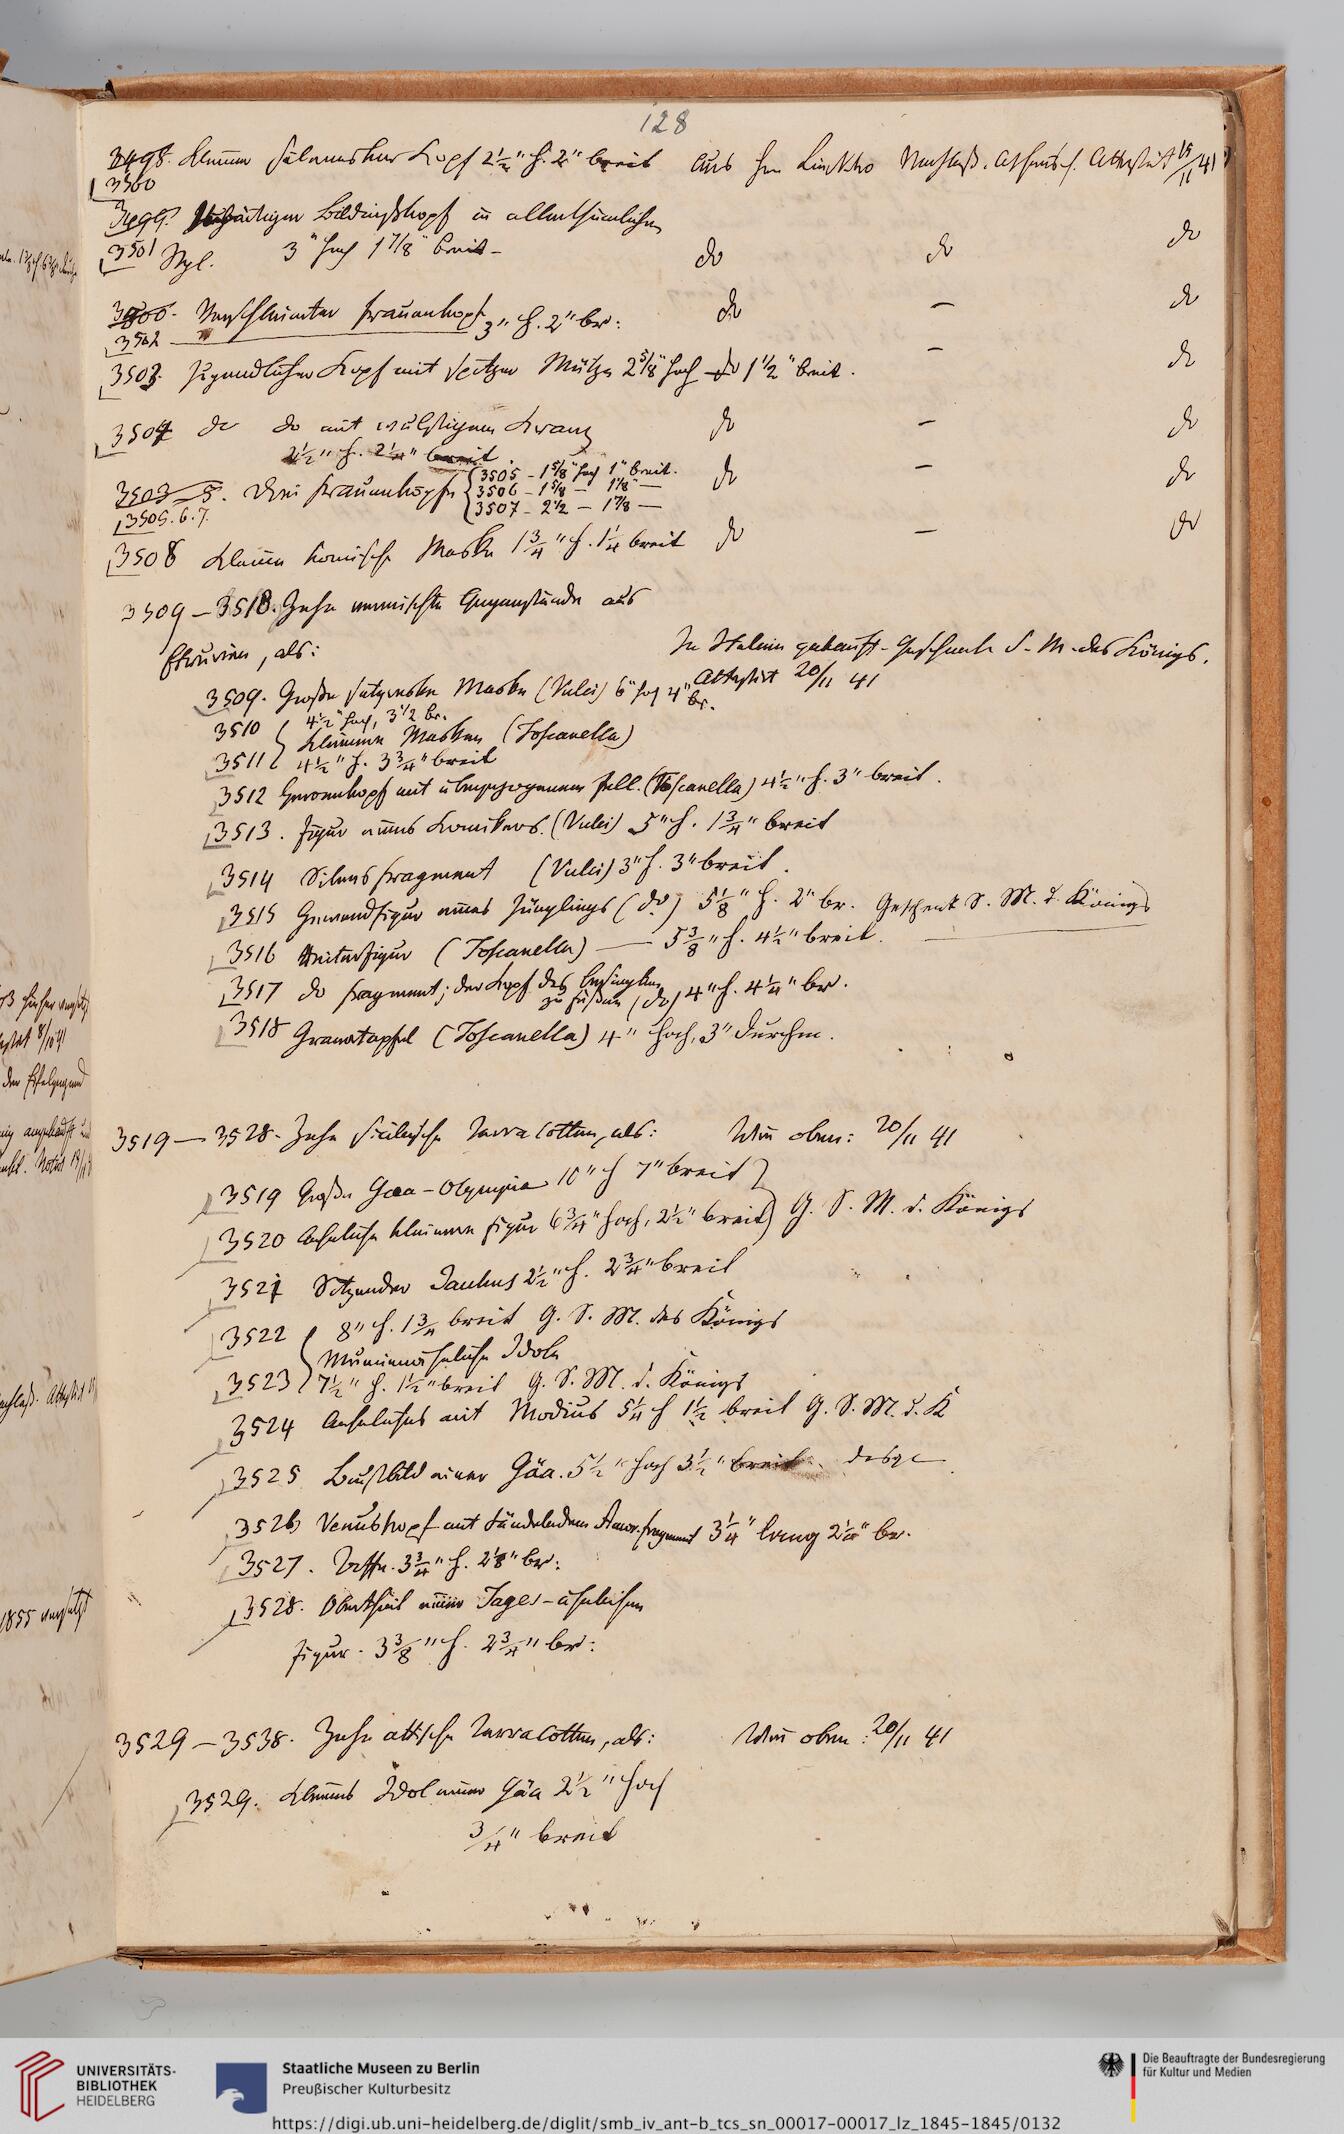 128
3498. Kleiner Silenesker Kopf 2½" h. 2" breit Aus Hn Nachlaß. Attestat 15/11 41
3500
3499. Bildnißkopf in alterthümlichem
3501 Styl. 3" hoch 1 7/8" breit - do do do
3500. Verschleierter Frauenkopf 3" h. 2" br: do — do
3502
3503. Jugendlicher Kopf mit spitzer Mütze 2 5/8" hoch do 1½" breit. — do
3504 do do mit wulstigem Kranz do — do
2½" h. 2¼" breit.
3503-5. Drei Frauenköpfe 3505 - 1 5/8" hoch 1" breit. do — do
3506 - 1 5/8 — 1 1/8" —
3505. 6. 7. 3507 - 2½ — 1 7/8 —
3508 Kleine komische Maske 1¾" h. 1¼ breit do — do
3509 — 3518. Zehn vermischte Gegenstände aus
Etrurien, als: In Italien gekauft - Geschenk S. M. des Königs.
Attestirt 20/11 41
3509. Große Maske (Vulci) 6" hoch 4" br.
3510 4½" hoch, 3½ br.
Kleinere Masken (Toscanella)
3511 4½" h. 3¾" breit
3512 Heroenkopf mit übergezogenem Fell. (Toscanella) 4½" h. 3" breit.
3513. Figur eines Komikers. (Vulci) 5" h. 1¾" breit
3514 Silensfragment (Vulci) 3" h. 3" breit.
3515 Gewandfigur eines Jünglings (do) 5⅛" h. 2" br. Geschenk S. M. d. Königs
3516 Reiterfigur (Toscanella) — 5⅜" h. 4½" breit.
3517 do Fragment; der Kopf des Besiegten
zu Füßen (do) 4" h. 4¼" br.
3518 Granatapfel (Toscanella) 4" hoch, 3" Durchm.
3519 — 3528. Zehn sicilische Terracotten, als: Wie oben: 20/11 41
3519 Große Gaea-Olympia 10" h 7" breit
3520 Aehnliche kleinere Figur 6¾" hoch, 2½" breit G. S. M. d. Königs
3521 Sitzender 2½" h. 2¾" breit
3522 8" h. 1¾ breit G. S. M. des Königs
Mumienähnliche Idole
3523 7½" h. 1½" breit G. S. M. d. Königs
3524 Aehnliches mit Modius 5¼ h 1½ breit G. S. M. d. K
3525 Brustbild einer Gäa. 5½" hoch 3½" breit. desgl
3526 Venuskopf mit tändelndem Amor. Fragment 3¼" lang 2¼" br.
3527. 3¾" h. 2⅛" br:
3528. Obertheil einer Tages-ähnlichen
Figur. 3⅜" h. 2¾" br:
3529 — 3538. Zehn attische Terracotten, als: Wie oben: 20/11 41
3529. Kleines Idol einer Gäa 2½" hoch
¾" breit
1855 versetzt
UNIVERSITÄTS-
BIBLIOTHEK
HEIDELBERG
Staatliche Museen zu Berlin
Preußischer Kulturbesitz
https://digi.ub.uni-heidelberg.de/diglit/smb_iv_ant-b_tcs_sn_00017-00017_lz_1845-1845/0132
Die Beauftragte der Bundesregierung
für Kultur und Medien